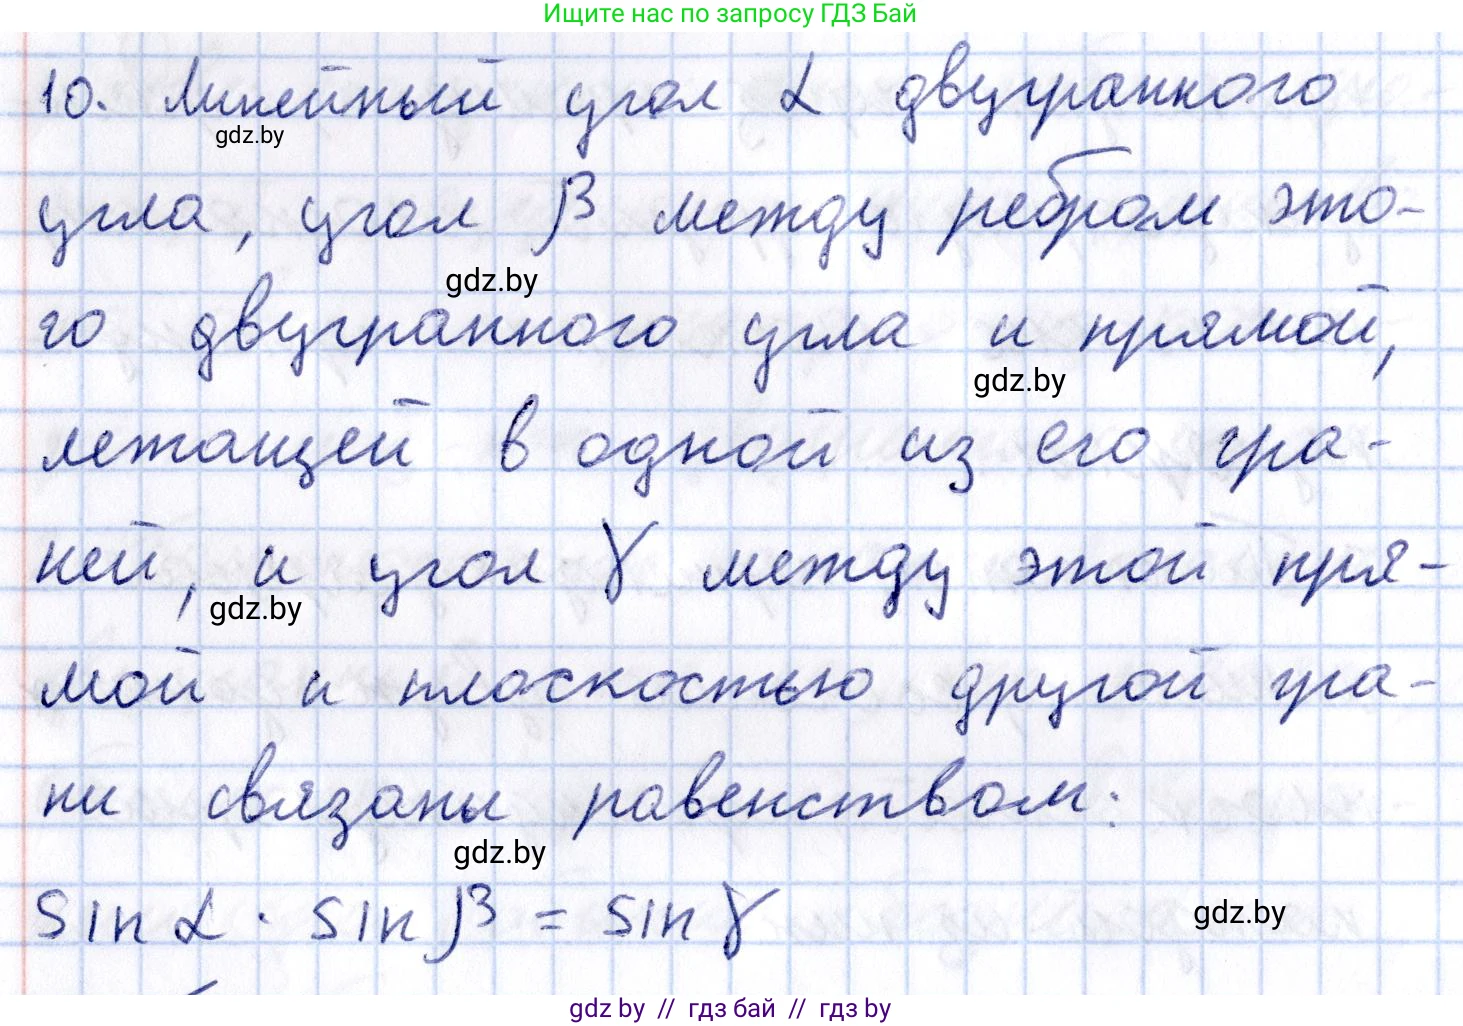 Ищите нас по запросу ГДЗ Бай
10. Линейный угол α двугранного
gdz.by
угла, угол β между ребром это-
gdz.by
го двугранного угла и прямой,
gdz.by
лежащей в одной из его гра-
ней, и угол γ между этой пря-
gdz.by
мой и плоскостью другой гра-
ни связаны равенством:
gdz.by
sin α · sin β = sin γ
gdz.by
gdz.by // гдз бай // гдз by